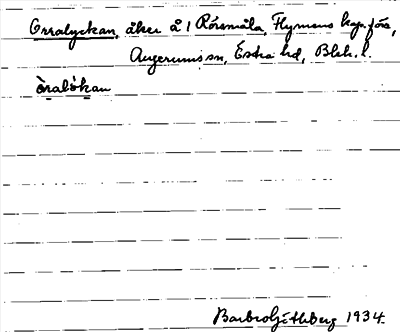 Orralyckan, åker å 1 Rörsmåla, Flymens kapförs,
Augerums sn, Östra hd, Blek. l.
òralò̀kan
Barbro Götheberg 1934.